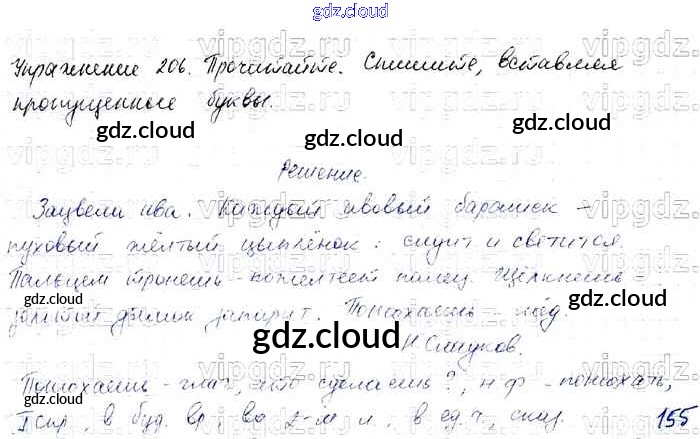 gdz.cloud
Упражнение 206. Прочитайте. Спишите, вставляя
пропущенные буквы.
gdz.cloud
gdz.cloud
Решение.
Зацвели ива. Каждый ивовый барашек -
пуховый жёлтый цыплёнок: сидит и светится.
Пальцем тронешь - пожелтеет палец. Щёлкнешь -
золотый дымок запарит. Понюхаешь - мёд.
gdz.cloud
gdz.cloud
gdz.cloud
Н. Сладков.
Понюхаешь - глаг., что сделаешь?, н.ф. - понюхать,
I спр., в буд. вр., во 2-м л., в ед.ч.,
gdz.cloud
155